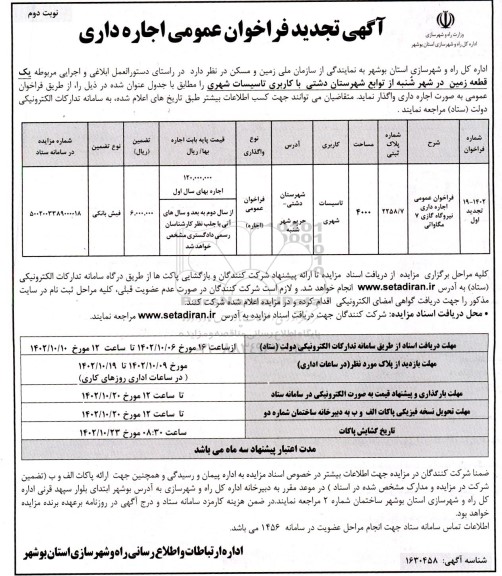 نوبت دوم
آگهی تجدید فراخوان عمومی اجاره داری
وزارت راه و شهرسازی
اداره کل راه و شهرسازی استان بوشهر
اداره کل راه و شهرسازی استان بوشهر به نمایندگی از سازمان ملی زمین و مسکن در نظر دارد در راستای دستورالعمل ابلاغی و اجرایی مربوطه یک
قطعه زمین در شهر شنبه از توابع شهرستان دشتی با کاربری تاسیسات شهری را مطابق با جدول عنوان شده در ذیل را، از طریق فراخوان
عمومی به صورت اجاره داری واگذار نماید. متقاضیان می توانند جهت کسب اطلاعات بیشتر طبق تاریخ های اعلام شده، به سامانه تدارکات الکترونیکی
دولت (ستاد) مراجعه نمایند.
شماره فراخوان | شرح | شماره پلاک ثبتی | مساحت | کاربری | آدرس | نوع واگذاری | قیمت پایه بابت اجاره بها/ ریال | تضمین (ریال) | نوع تضمین | شماره مزایده در سامانه ستاد
۱۹-۱۴۰۲ تجدید اول | فراخوان عمومی اجاره داری نیروگاه گازی ۷ مگاواتی | ۲۲۵۸/۷ | ۴۰۰۰ | تاسیسات شهری | شهرستان دشتی- حریم شهر شنبه | فراخوان عمومی (اجاره) | ۱۲۰,۰۰۰,۰۰۰ اجاره بهای سال اول | ۶,۰۰۰,۰۰۰ | فیش بانکی | ۵۰۰۲۰۰۳۳۸۹۰۰۰۰۱۸
از سال دوم به بعد و سال های آتی با جلب نظر کارشناسان رسمی دادگستری مشخص خواهد شد
کلیه مراحل برگزاری مزایده از دریافت اسناد مزایده تا ارائه پیشنهاد شرکت کنندگان و بازگشایی پاکت ها از طریق درگاه سامانه تدارکات الکترونیکی
(ستاد) به آدرس www.setadiran.ir انجام خواهد شد. و لازم است شرکت کنندگان در صورت عدم عضویت قبلی، کلیه مراحل ثبت نام در سایت
مذکور را جهت دریافت گواهی امضای الکترونیکی اقدام کرده و در مزایده اعلام شده شرکت کنند.
• محل دریافت اسناد مزایده: شرکت کنندگان جهت دریافت اسناد مزایده به آدرس www.setadiran.ir مراجعه نمایند.
مهلت دریافت اسناد از طریق سامانه تدارکات الکترونیکی دولت (ستاد) | از ساعت ۱۶ مورخ ۱۴۰۲/۱۰/۰۶ تا ساعت ۱۲ مورخ ۱۴۰۲/۱۰/۱۰
مهلت بازدید از پلاک مورد نظر(در ساعات اداری) | مورخ ۱۴۰۲/۱۰/۰۹ تا ۱۴۰۲/۱۰/۱۹
( در ساعات اداری روزهای کاری)
مهلت بارگذاری و پیشنهاد قیمت به صورت الکترونیکی در سامانه ستاد | تا ساعت ۱۲ مورخ ۱۴۰۲/۱۰/۲۰
مهلت تحویل نسخه فیزیکی پاکات الف و ب به دبیرخانه ساختمان شماره دو | تا ساعت ۱۲ مورخ ۱۴۰۲/۱۰/۲۰
تاریخ گشایش پاکات | ساعت ۰۸:۳۰ مورخ ۱۴۰۲/۱۰/۲۳
مدت اعتبار پیشنهاد سه ماه می باشد
ضمنا شرکت کنندگان در مزایده جهت اطلاعات بیشتر در خصوص اسناد مزایده به اداره پیمان و رسیدگی و همچنین جهت ارائه پاکات الف و ب (تضمین
شرکت در مزایده و مدارک مشخص شده در اسناد ) در موعد مقرر به دبیرخانه اداره کل راه و شهرسازی به آدرس بوشهر ابتدای بلوار سپهد قرنی اداره
کل راه و شهرسازی استان بوشهر ساختمان شماره ۲ مراجعه نمایند.در ضمن هزینه کارمزد سامانه ستاد و درج آگهی در روزنامه برعهده برنده مزایده
خواهد بود.
اطلاعات تماس سامانه ستاد جهت انجام مراحل عضویت در سامانه ۱۴۵۶ می باشد.
اداره ارتباطات و اطلاع رسانی راه و شهرسازی استان بوشهر
شناسه آگهی: ۱۶۳۰۴۵۸